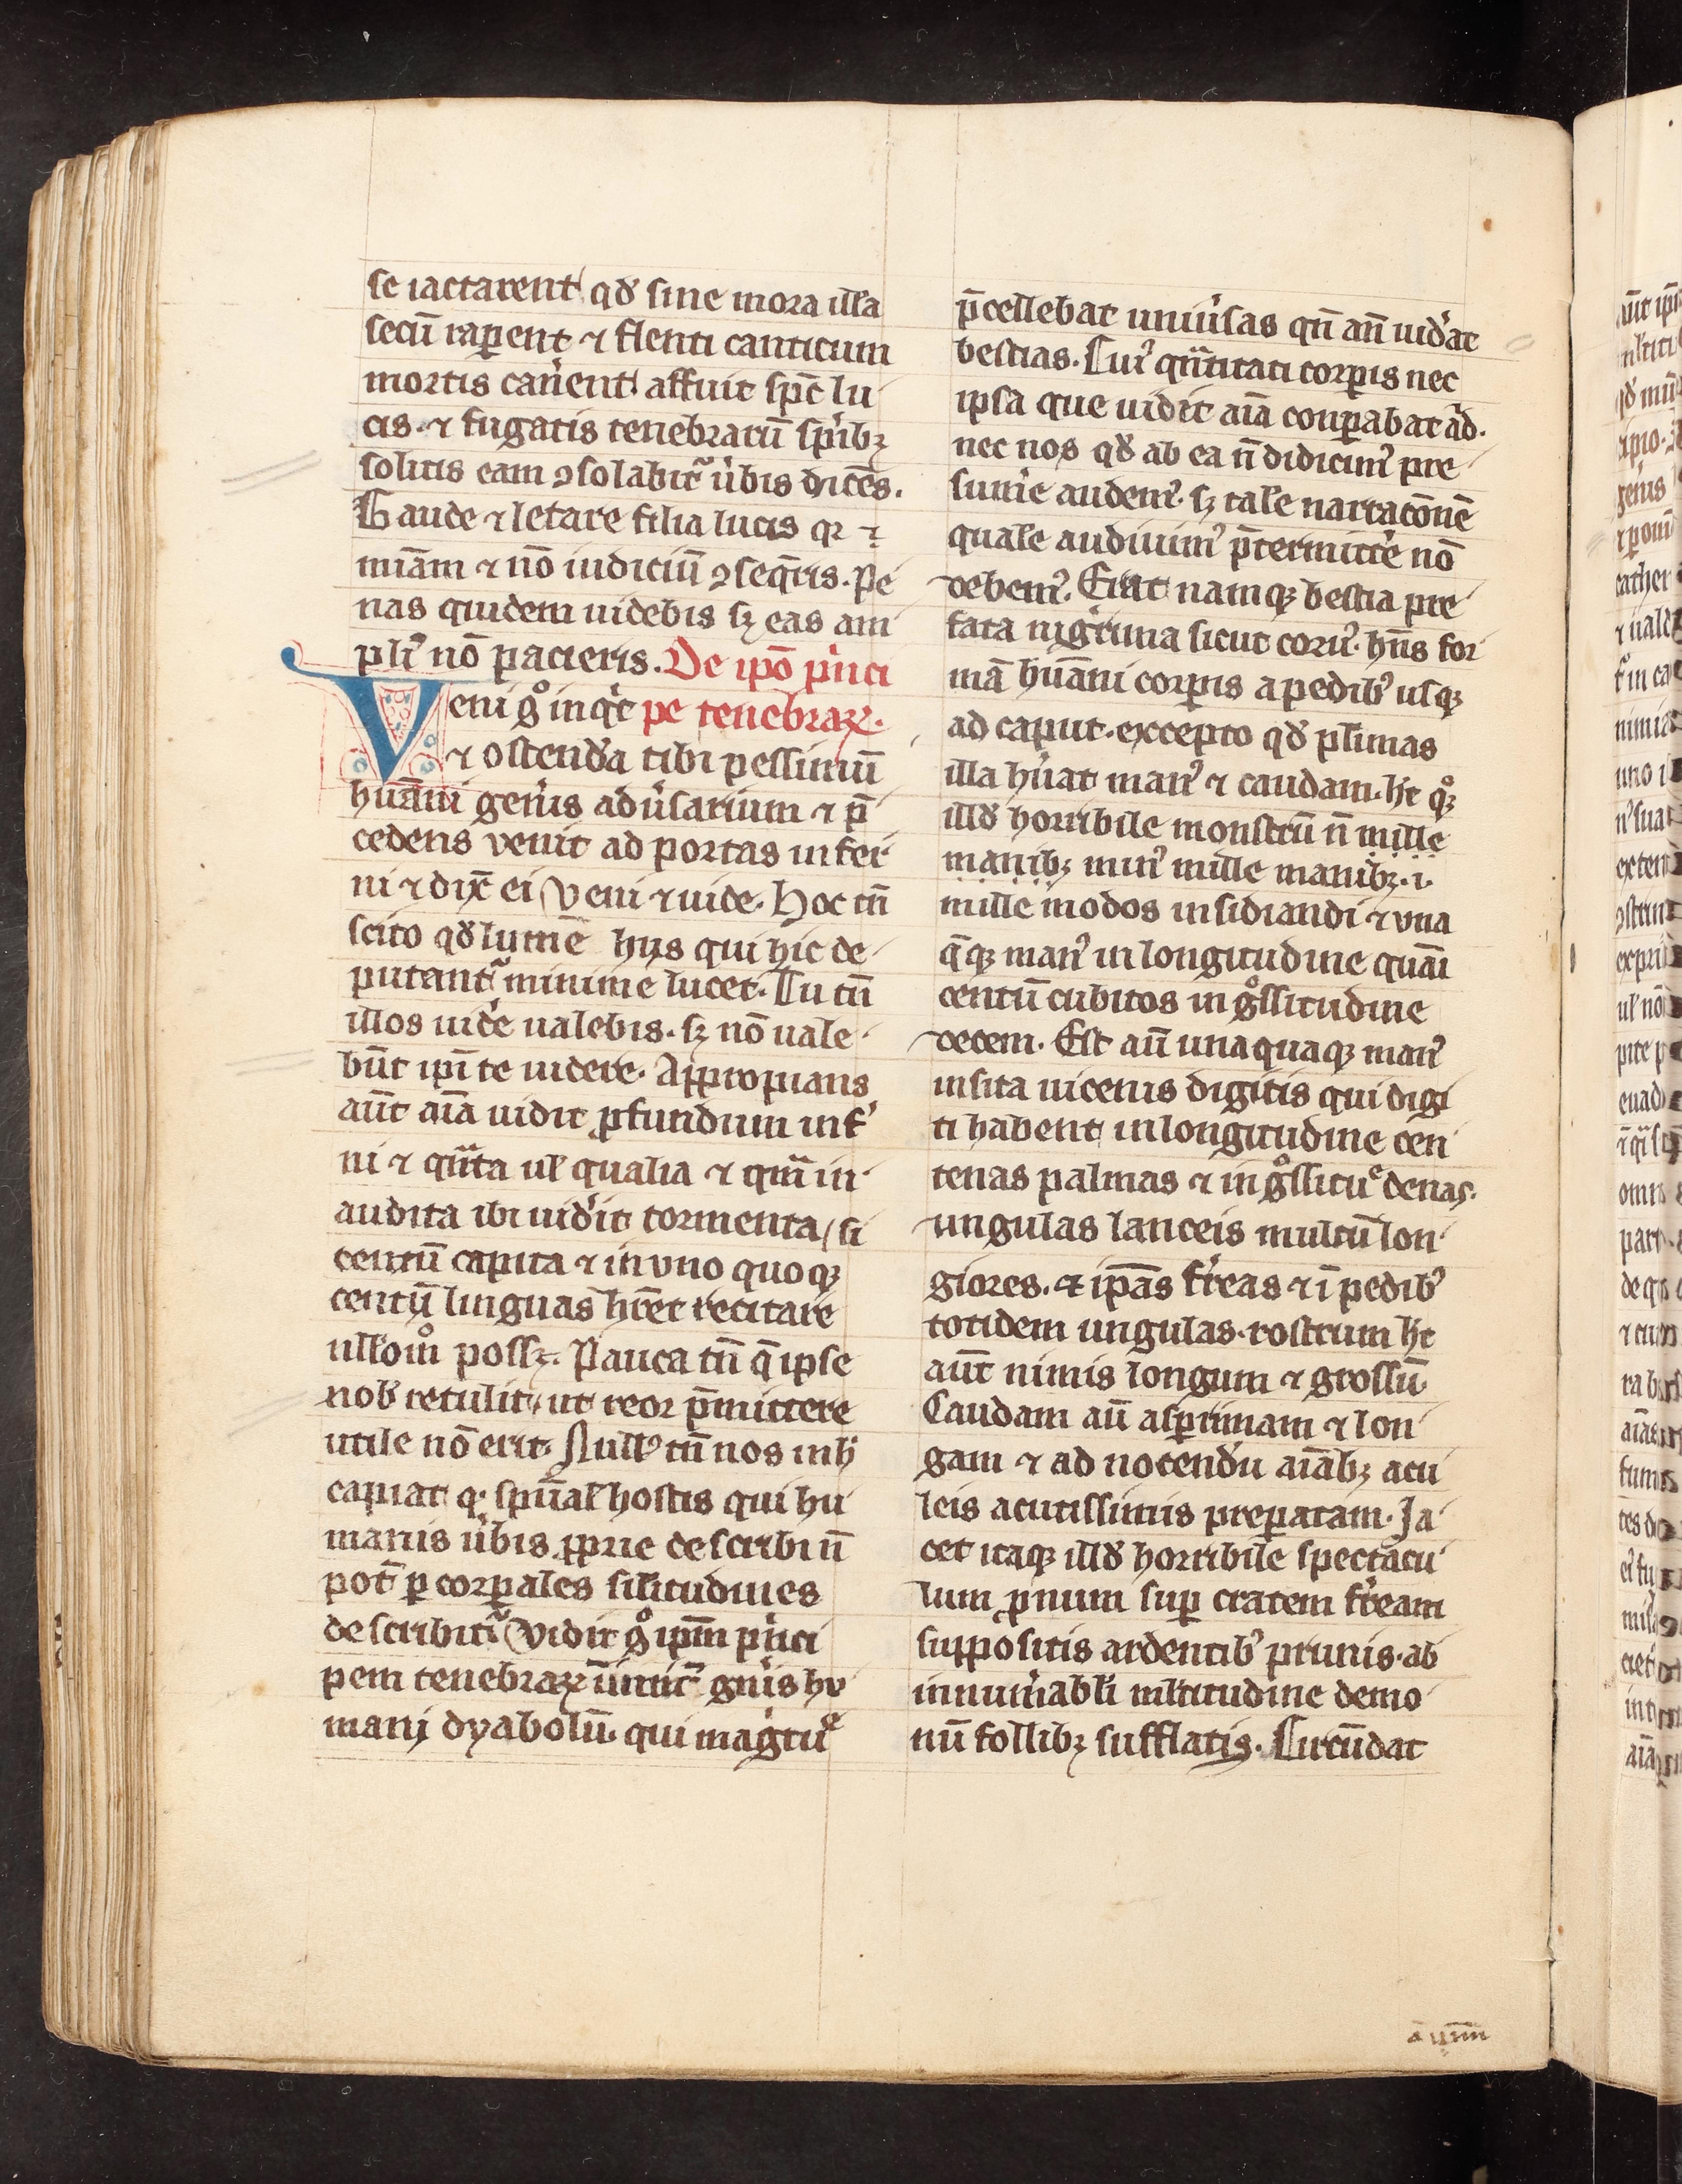 se iactarent qđ sine mora illā
secū raꝑent ⁊ flenti canticum
mortis can̾ent affuit sp̄c lu
cis ⁊ fugatis tenebrarū sp̄ibꝫ
solitis eam ꝯsolabit᷑ ūbis dicēs.
Gaude ⁊ letare filia lucis qꝛ
miām ⁊ nō iudiciū ꝯseq̄ris. Pe
nas quidem uidebis sꝫ eas am
pliꝰ nō pacieris. De ip̄o p̾nci
Veni gͦ inqͥt pe tenebraꝝ.
⁊ ostend̾a tibi pessimū
hūani gen̾is adūsarium ⁊ p̄
cedens venit ad portas infer
ni ⁊ dix̄ ei Veni ⁊ uide. Hoc tn̄
scito qđ lumē hijs qui hic de
putant᷑ minime lucet. Tu tn̄
illos uid̾e ualebis. sꝫ nō uale
būt ip̄i te uidere. Appropians
aūt aīa uidit ꝓfundum inf̾
ni ⁊ qn̄ta ul̾ qualia ⁊ qm̄ in
audita ibi uid̾it tormenta/ si
centū capita ⁊ in vno quoqꝫ
centū linguas hr̄et recitare
ull̾om̊ possꝫ. Pauca tn̄ q̄ ipse
nob̾ retulit ut reor p̄mittere
utile nō erit. Nullꝰ tn̄ nos in h̾
capiat qͥ spūal̾ hostis qui hu
manis ūbis ꝓprie describi n̄
pot̄ ꝑ corꝑales sil̾itudines
describit᷑ Vidit gͦ ip̄m p̾nci
pem tenebraꝝ īimic̄ gn̾is hu
mani dyabolū. qui magͥtuͤ
p̄cellebat uniūsas qn̄ an̄ uid̾at
bestias. Cuiꝰ qn̄titati corꝑis nec
ipsa que uidit aīa conꝑabat ad.
nec nos qđ ab ea n̄ didicimꝰ pre
sum̾e audemꝰ. sꝫ tale narracōnē
quale audiuimꝰ p̄termitt̾e nō
debemꝰ. Erat namqꝫ bestia pre
fata nigͬrima sicut coruꝰ. hn̄s for
mā hūani corꝑis a pedibꝰ usqꝫ
ad caput. excepto qđ pl̾imas
illa h̾uat manꝰ ⁊ caudam. ht̾ qͦꝫ
illđ horribile monstrū n̄ mille
manibꝫ minꝰ mille manibꝫ. i.
mille modos insidiandi ⁊ vna
q̄qꝫ manꝰ in longitudine quāi
centū cubitos in gͦssitudine
decem. Est aū unaquaqꝫ manꝰ
insita uicenis digitis qui digi
ti habent in longitudine cen
tenas palmas ⁊ in gͦssituͤ denas.
ungulas lanceis multū lon
giores. ⁊ ip̄as f̾reas ⁊ ī pedibꝰ
totidem ungulas. rostrum ht̾
aūt nimis longum ⁊ grossū.
Caudam aū asꝑrimam ⁊ lon
gam ⁊ ad nocend̾u aīabꝫ acu
leis acutissimis preꝑatam. Ja
cet itaqꝫ illđ horribile spectacu
lum ꝓnum suꝑ cratem f̾ream
suppositis ardentibꝰ prunis. ab
innum̾abl̾i ml̾titudine demo
nū follibꝫ sufflatis. Circūdat